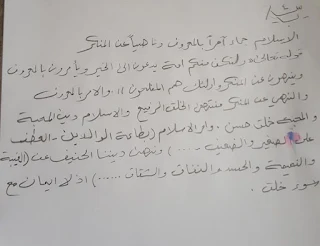 الاسلام جاء آمراً بالمعروف وناهياً عن المنكر
قوله تعالى ولتكن منكم امة يدعون الى الخير ويأمرون بالمعروف
وينهون عن المنكر واولئك هم المفلحون ،، والامر بالمعروف
والنهي عن المنكر منتهى الخلق الرفيع والاسلام دين المحبة
والمحبة خلق حسن . وامر الاسلام (بطاعة الوالدين - العطف
على الصغير والضعيف - .... ) ونهى ديننا الحنيف عن (الغيبة
والنميمة والحسد والنفاق والشقاق ...... ) اذ لا ايمان مع
سوء خلق .